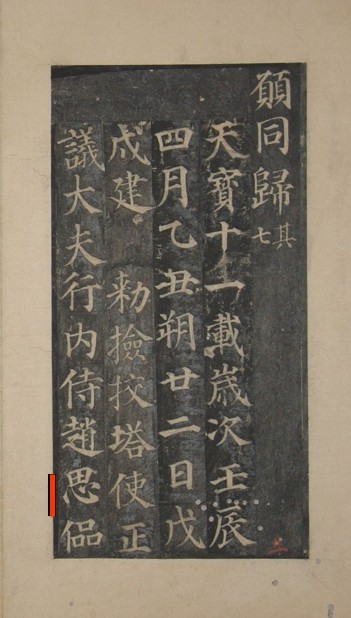 願同歸其七
天寶十一載歲次壬辰
四月乙丑朔廿二日戊
戌建 勑撿挍塔使正
議大夫行內侍趙思侃